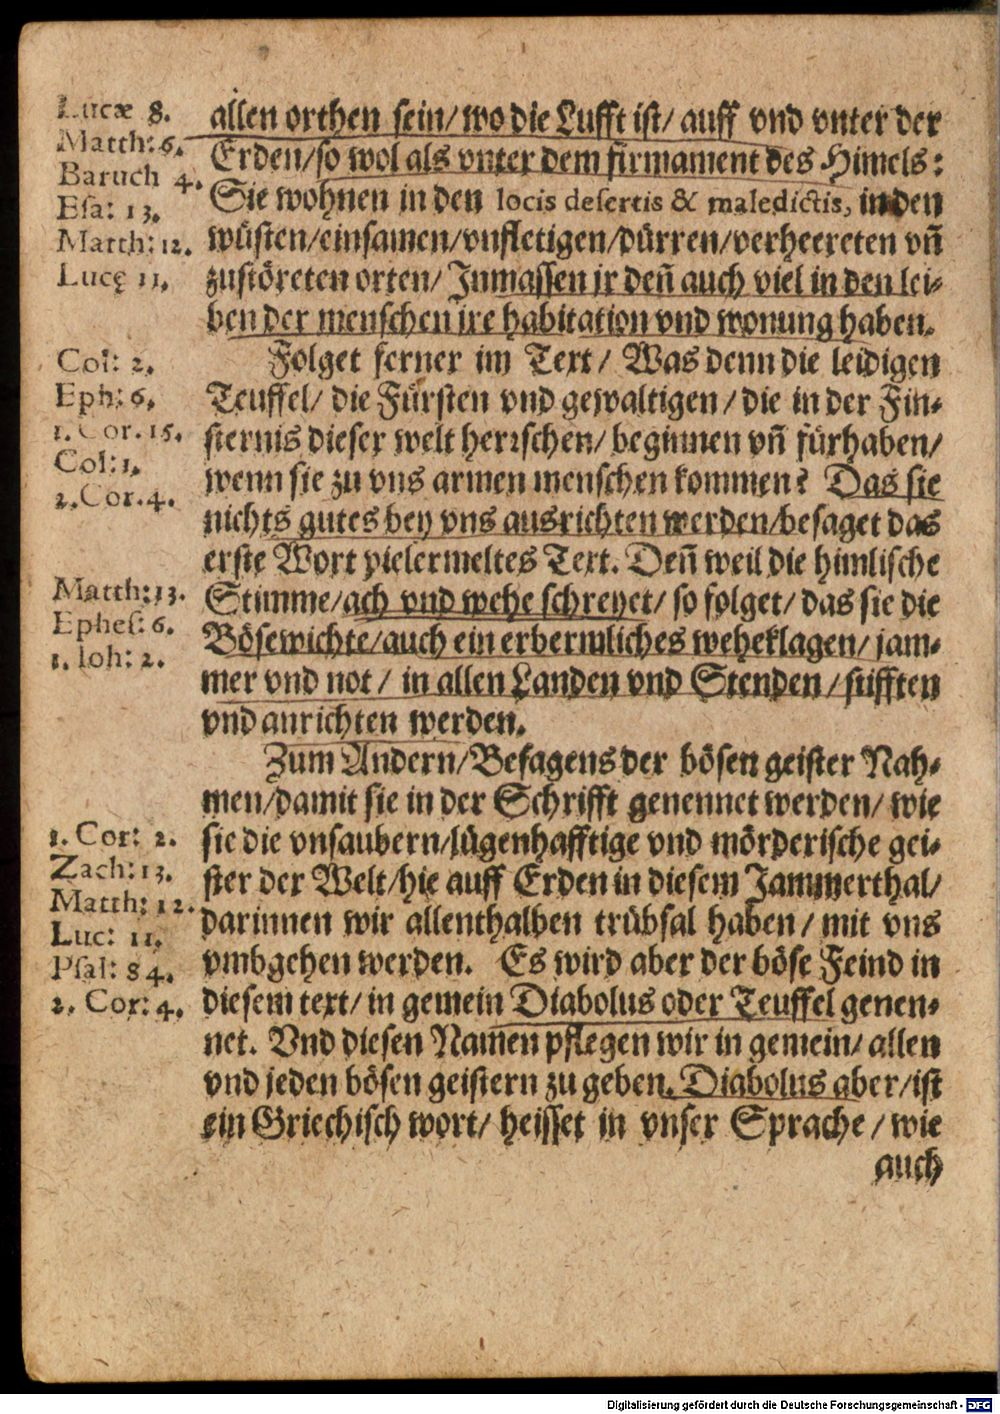 Lucæ 8.
Matth: 6.
Baruch 4.
Esa: 13.
Matth: 12.
Lucę 11.
allen orthen sein/ wo die Lufft ist/ auff vnd vnter der
Erden/ so wol als vnter dem firmament des Himels:
Sie wohnen in den locis desertis & maledictis, in den
wüsten/ einsamen/ vnfletigen/ dürren/ verheereten vñ
zustöreten orten/ Inmassen jr deñ auch viel in den lei-
ben der menschen jre habitation vnd wonung haben.
Col: 2.
Eph: 6.
1. Cor. 15.
Col: 1.
2. Cor. 4.
Matth: 13.
Ephes: 6.
1. Ioh: 2.
Folget ferner im Text/ Was denn die leidigen
Teuffel/ die Fürsten vnd gewaltigen/ die in der Fin-
sternis dieser welt herꝛschen/ beginnen vñ fürhaben/
wenn sie zu vns armen menschen kommen? Das sie
nichts gutes bey vns ausrichten werden/ besaget das
erste Wort vielermeltes Text. Deñ weil die himlische
Stimme/ ach vnd wehe schreyet/ so folget/ das sie die
Bösewichte/ auch ein erbermliches weheklagen/ jam-
mer vnd not/ in allen Landen vnd Stenden/ stifften
vnd anrichten werden.
1. Cor: 2.
Zach: 13.
Matth: 12.
Luc: 11.
Psal: 84.
2. Cor: 4.
Zum Andern/ Besagens der bösen geister Nah-
men/ damit sie in der Schrifft genennet werden/ wie
sie die vnsaubern/ lügenhafftige vnd mörderische gei-
ster der Welt/ hie auff Erden in diesem Jammerthal/
darinnen wir allenthalben trübsal haben/ mit vns
vmbgehen werden. Es wird aber der böse Feind in
diesem text/ in gemein Diabolus oder Teuffel genen-
net. Vnd diesen Namen pflegen wir in gemein/ allen
vnd jeden bösen geistern zu geben. Diabolus aber/ ist
ein Griechisch wort/ heisset in vnser Sprache/ wie
auch
Digitalisierung gefördert durch die Deutsche Forschungsgemeinschaft - DFG